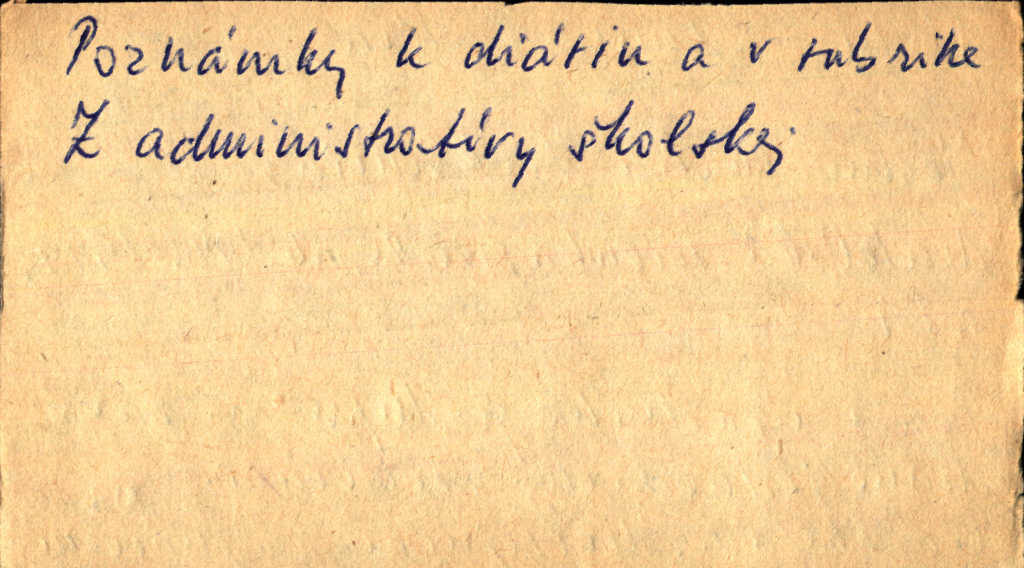 Poznámky k diátin a v rubrike
Z administratívy školskej